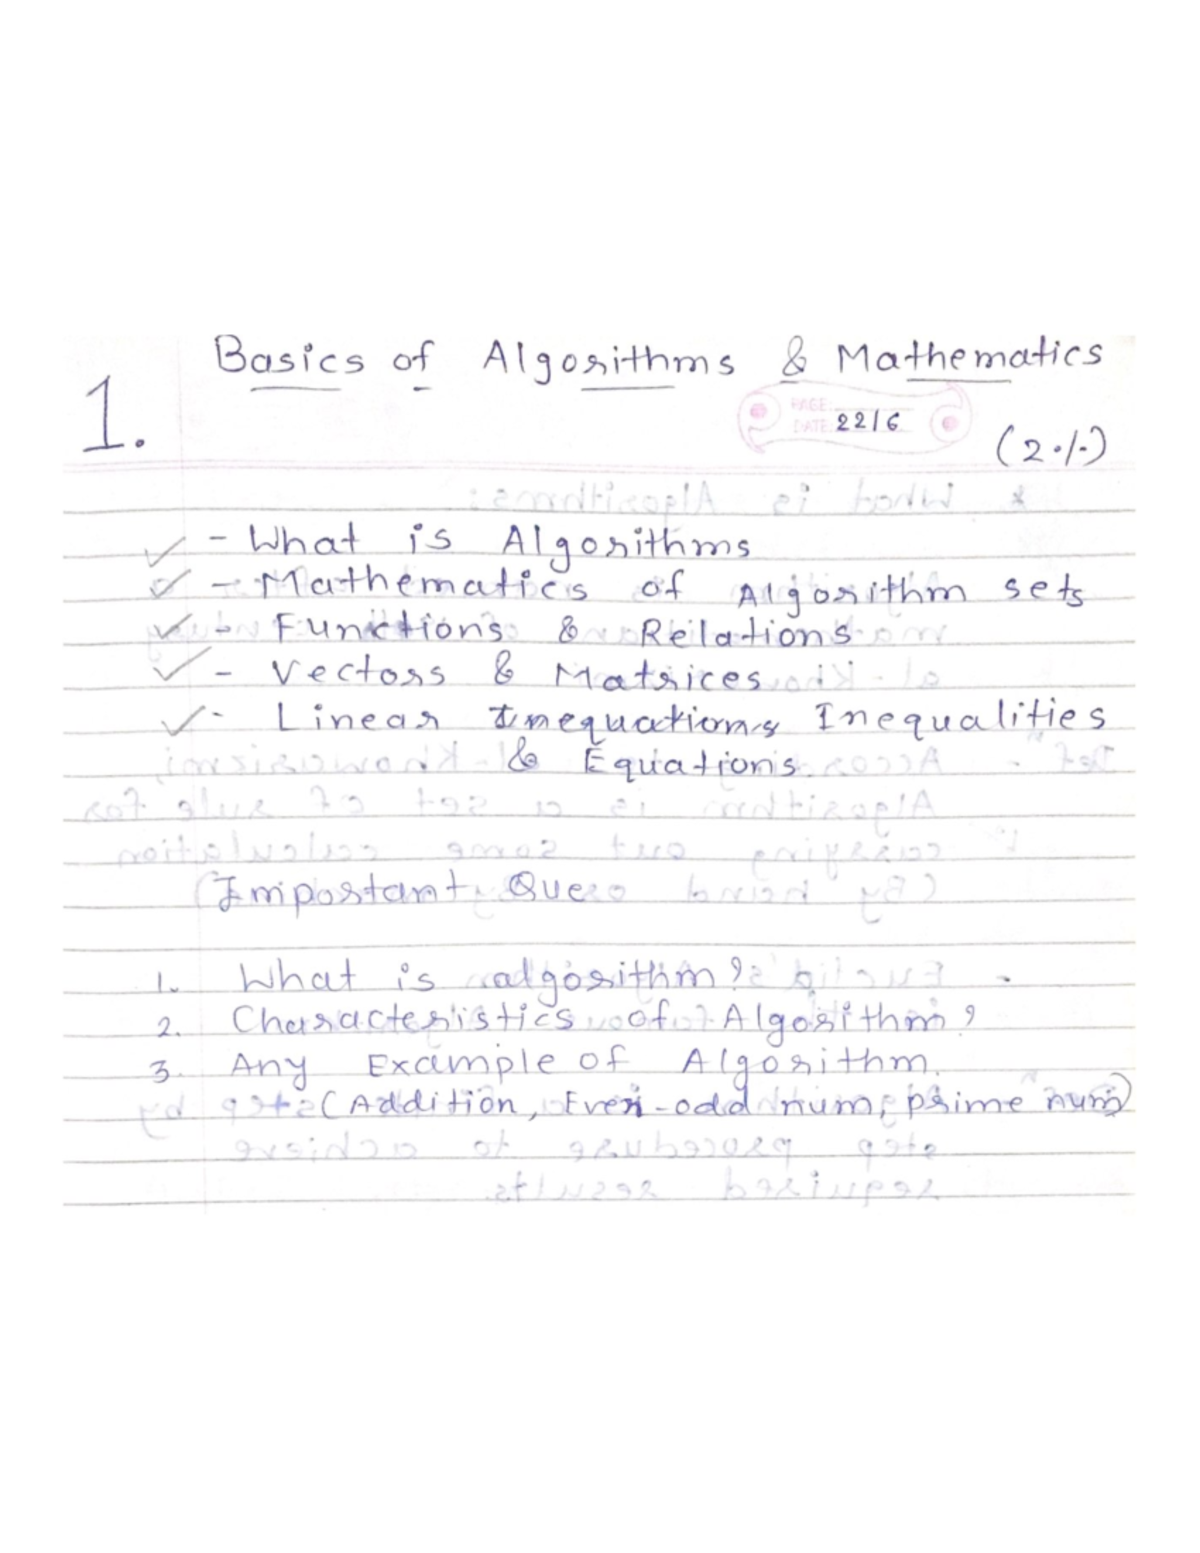 Basics of Algorithms & Mathematics
1.
PAGE:
DATE: 22/6
(2%)
- What is Algorithms
- Mathematics of Algorithm sets
- Functions & Relations
- Vectors & Matrices
- Linear Inequations Inequalities
& Equations
Important Que
1. What is algorithm?
2. Characteristics of Algorithm?
3. Any Example of Algorithm.
(Addition, Even-odd num, prime num)